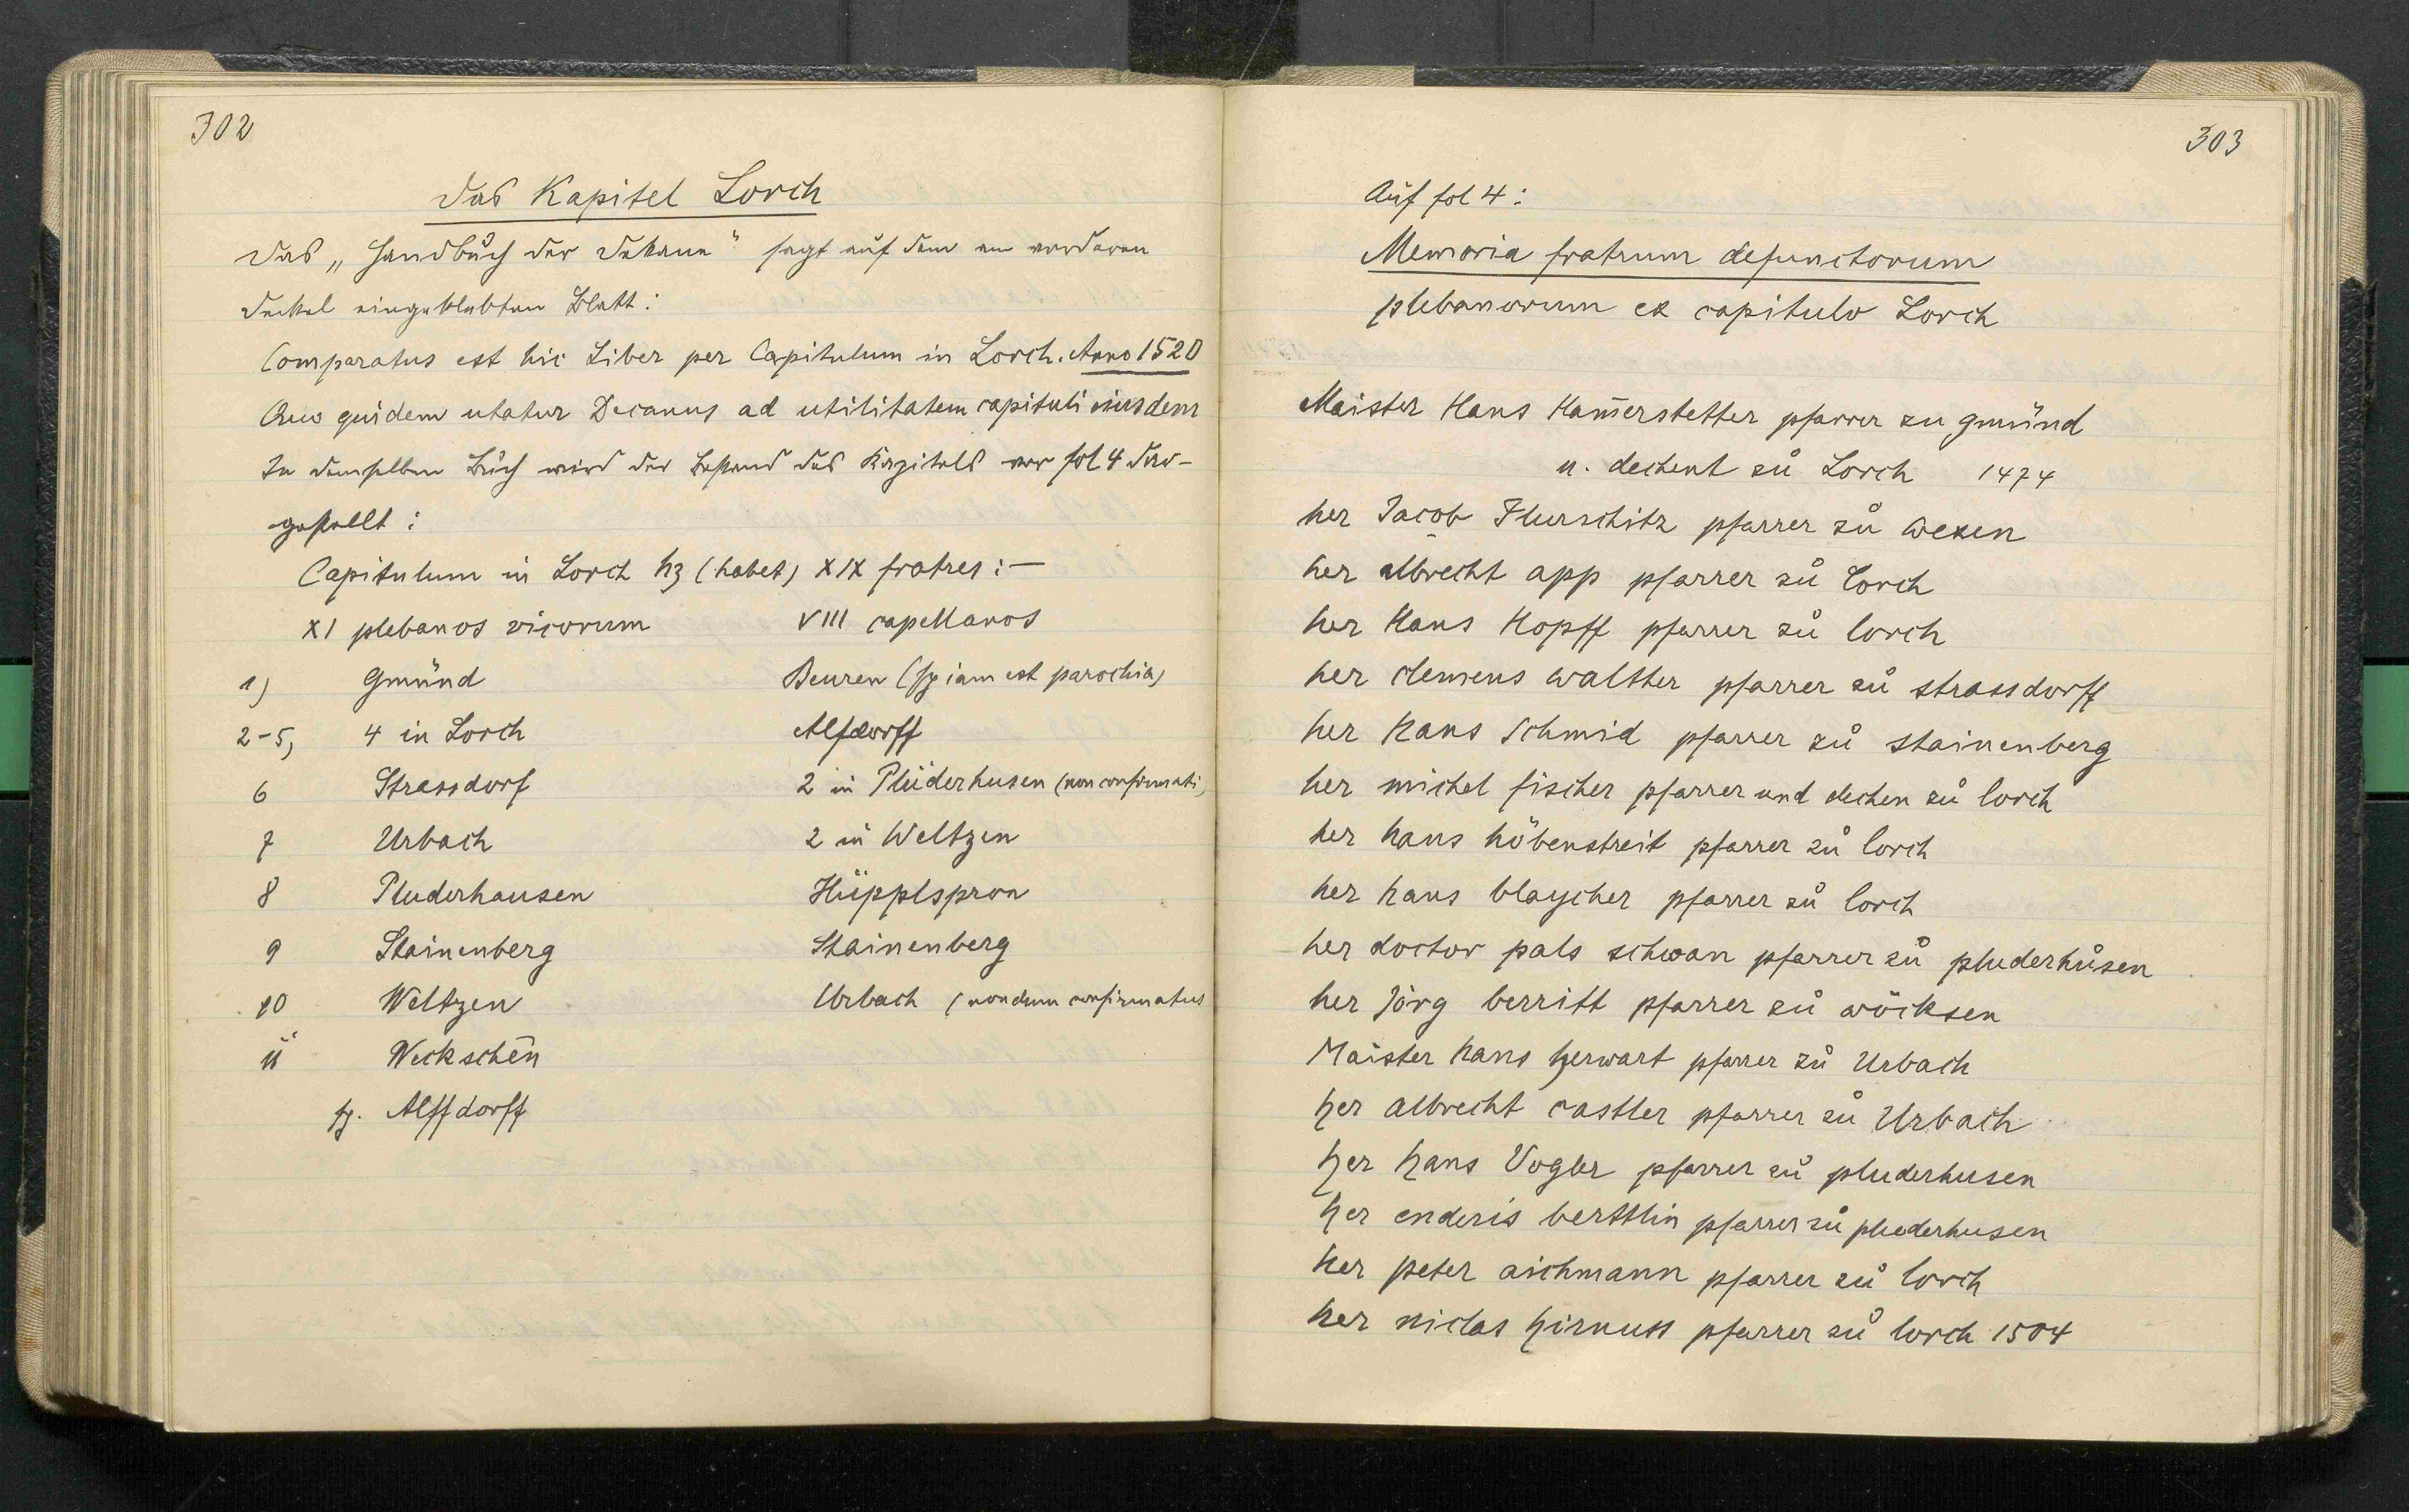 302
Das Kapitel Lorch
Das „Handbuch der Dekane" sagt auf dem am vorderen
Deckel eingeklebten Blatt:
Comparatus est hic Liber per Capitulum in Lorch. Anno 1520
Quo quidem utatur Decanus ad utilitatem capituli eiusdem
In demselben Buch wird der Bestand des Kapitels vor fol 4 dar-
gestellt:
Capitulum in Lorch hz (habet) XIX fratres: —
XI plebanos vicorum VIII capellanos
1) Gmünd Beuren ( iam est parochia)
2-5, 4 in Lorch Alfdorff
6 Strassdorf 2 in Plüderhusen (non confirmati)
7 Urbach 2 in Weltzen
8 Pluderhausen Hüpplspron
9 Stainenberg Stainenberg
10 Weltzen Urbach (nondum confirmatus
11 Weckschēn
Alffdorff
303
Auf fol 4:
Memoria fratrum defunctorum
plebanorum ex capitulo Lorch
Maister Hans Ham̄erstetter pfarrer zu gmünd
u. dechent zů Lorch 1474
her Jacob Flurschitz pfarrer zů wexen
her albrecht app pfarrer zů Lorch
her Hans Hopff pfarrer zů lorch
her clemens walther pfarrer zů strassdorff
her Hans Schmid pfarrer zů stainenberg
her michel fischer pfarrer und dechen zů lorch
her hans höbenstreit pfarrer zů lorch
her hans blaycher pfarrer zů lorch
her doctor pals schwan pfarrer zů pluderhůsen
her Jörg berritt pfarrer zů wöcksen
Maister hans herwart pfarrer zů Urbach
her albrecht castler pfarrer zů Urbach
her hans Vogler pfarrer zů pluderhusen
her enderis berttlin pfarrer zů pluderhusen
her peter aichmann pfarrer zů lorch
her niclas hirnuss pfarrer zů lorch 1504